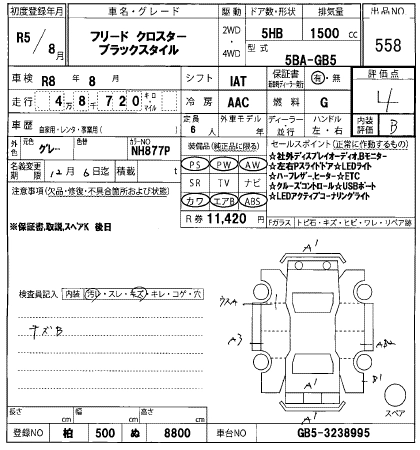 初度登録年月 車名・グレード 駆動 ドア数・形状 排気量 出品NO
R5/8月 フリード クロスター ブラックスタイル 2WD・4WD 5HB 1500cc 558
型式 5BA-GB5
車検 R8年8月 シフト IAT 保証書 有・無 評価点
走行 4万8千720 キロ・マイル 冷房 AAC 燃料 G 4
車歴 自家用・レンタ・事業用( ) 定員 6人 外車モデル 年 ディーラー・並行 ハンドル 左・右 内装評価 B
外色 元色 グレー 色替 カラーNO NH877P
装備品(純正品に限る) セールスポイント(正常に作動するもの)
名義変更期限 12月6日迄 積載 t
PS PW AW
SR TV ナビ
カワ エアB ABS
R券 11,420円
★社外ディスプレイオーディオ,Bモニター
★左右PスライドドアLEDライト
★ハーフレザーヒーター☆ETC
★クルーズコントロール☆USBポート
★LEDアクティブコーナリングライト
注意事項(欠品・修復・不具合箇所および改造等)
※保障密,取説,スペアK 後日
Fガラス トビ石・キズ・ヒビ・ワレ・リペア跡
検査員記入 内装 汚レ・スレ・キズ・キレ・コゲ・穴
キズB
A1
A1
A3
B1
A1
A1
スペア
長さ cm 幅 cm 高さ cm
登録NO 柏 500 ぬ 8800 車台NO GB5-3238995